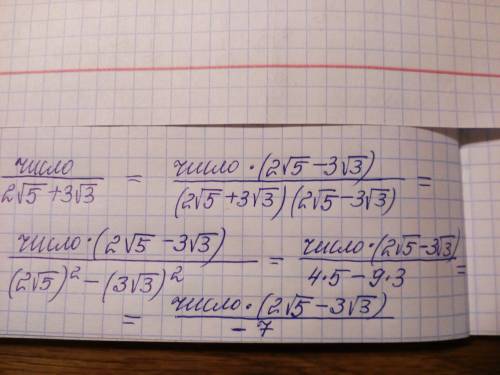 число / 2√5 + 3√3 = число · (2√5 − 3√3) / (2√5 + 3√3)(2√5 − 3√3) =
число · (2√5 − 3√3) / (2√5)² − (3√3)² = число · (2√5 − 3√3) / 4·5 − 9·3 =
= число · (2√5 − 3√3) / − 7